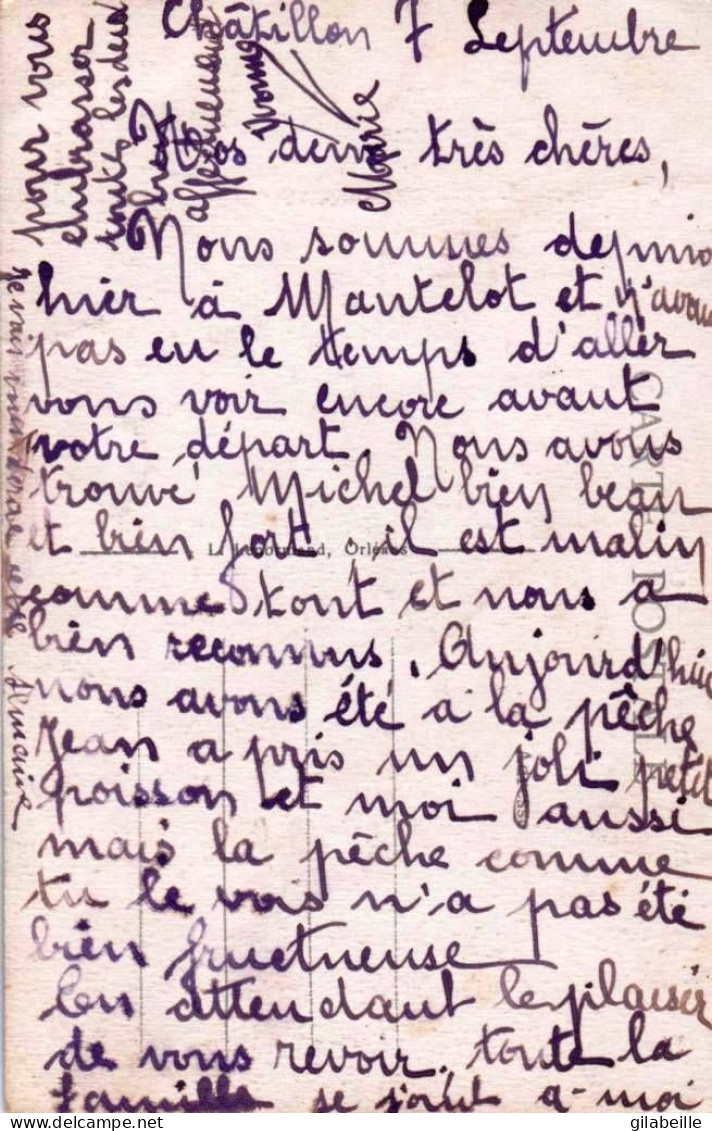 Châtillon 7 Septembre
Nos deux très chères,
Nous sommes depuis
hier à Mantelot et n'avons
pas eu le temps d'aller
vous voir encore avant
votre départ. Nous avons
trouvé Michel bien beau
et bien fort, il est malin
comme tout et nous a
bien reconnus. Aujourd'hui
nous avons été a la pêche
Jean a pris un joli petit
poisson et moi aussi
mais la pêche comme
tu le vois n'a pas été
bien fructueuse
En attendant le plaisir
de vous revoir. toute la
famille se joint a-moi
pour vous
embrasser
toutes les deux
bien
affectueusement
Yvonne
Marie
Je vais
CARTE POSTALE
L. Lenormand, Orléans
gilabeille